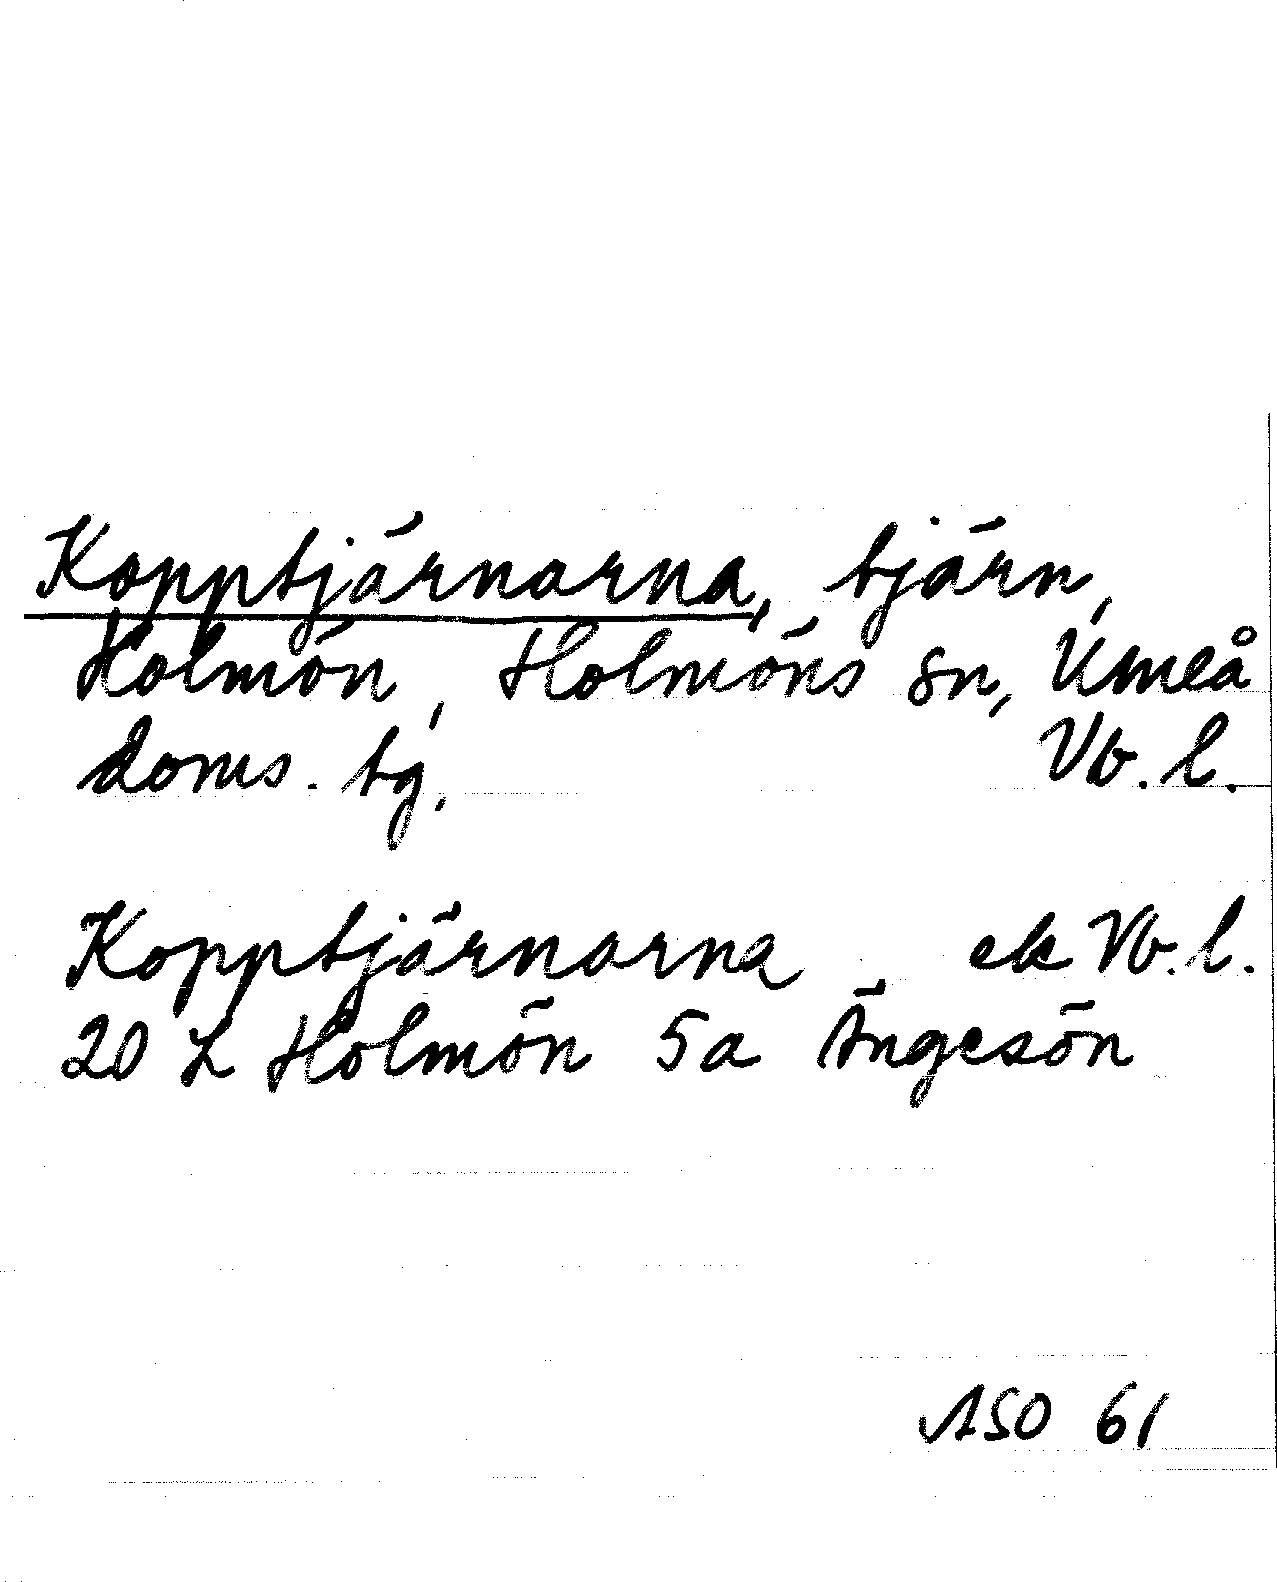 Kopptjärnarna, tjärn,
Holmön, Holmöns sn, Umeå
doms. tg. Vb. l.
Kopptjärnarna ek Vb. l.
20 L Holmön 5a Ängesön
ASO 61